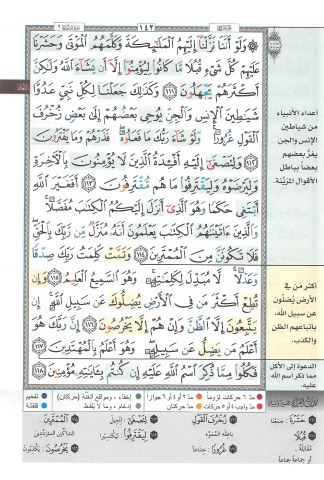 ١٤٢
۞ وَلَوْ أَنَّنَا نَزَّلْنَا إِلَيْهِمُ الْمَلَٰئِكَةَ وَكَلَّمَهُمُ الْمَوْتَىٰ وَحَشَرْنَا
عَلَيْهِمْ كُلَّ شَىْءٍ قُبُلًا مَّا كَانُوا لِيُؤْمِنُوا إِلَّا أَن يَشَاءَ اللَّهُ وَلَٰكِنَّ
أَكْثَرَهُمْ يَجْهَلُونَ ١١١ وَكَذَٰلِكَ جَعَلْنَا لِكُلِّ نَبِىٍّ عَدُوًّا
شَيَٰطِينَ الْإِنسِ وَالْجِنِّ يُوحِى بَعْضُهُمْ إِلَىٰ بَعْضٍ زُخْرُفَ
الْقَوْلِ غُرُورًا ۚ وَلَوْ شَاءَ رَبُّكَ مَا فَعَلُوهُ ۖ فَذَرْهُمْ وَمَا يَفْتَرُونَ
١١٢ وَلِتَصْغَىٰ إِلَيْهِ أَفْـِٔدَةُ الَّذِينَ لَا يُؤْمِنُونَ بِالْـَٔاخِرَةِ
وَلِيَرْضَوْهُ وَلِيَقْتَرِفُوا مَا هُم مُّقْتَرِفُونَ ١١٣ أَفَغَيْرَ اللَّهِ
أَبْتَغِى حَكَمًا وَهُوَ الَّذِى أَنزَلَ إِلَيْكُمُ الْكِتَٰبَ مُفَصَّلًا ۚ
وَالَّذِينَ ءَاتَيْنَٰهُمُ الْكِتَٰبَ يَعْلَمُونَ أَنَّهُ مُنَزَّلٌ مِّن رَّبِّكَ بِالْحَقِّ ۖ
فَلَا تَكُونَنَّ مِنَ الْمُمْتَرِينَ ١١٤ وَتَمَّتْ كَلِمَتُ رَبِّكَ صِدْقًا
وَعَدْلًا ۚ لَّا مُبَدِّلَ لِكَلِمَٰتِهِ ۚ وَهُوَ السَّمِيعُ الْعَلِيمُ ١١٥ وَإِن
تُطِعْ أَكْثَرَ مَن فِى الْأَرْضِ يُضِلُّوكَ عَن سَبِيلِ اللَّهِ ۚ إِن
يَتَّبِعُونَ إِلَّا الظَّنَّ وَإِنْ هُمْ إِلَّا يَخْرُصُونَ ١١٦ إِنَّ رَبَّكَ هُوَ
أَعْلَمُ مَن يَضِلُّ عَن سَبِيلِهِ ۖ وَهُوَ أَعْلَمُ بِالْمُهْتَدِينَ
١١٧ فَكُلُوا مِمَّا ذُكِرَ اسْمُ اللَّهِ عَلَيْهِ إِن كُنتُم بِـَٔايَٰتِهِ مُؤْمِنِينَ ١١٨
أعداء الأنبياء
من شياطين
الإنس والجن
يغرّ بعضهم
بعضاً بباطل
الأقوال المزيّنة.
أكثر من في
الأرض يُضلّون
عن سبيل الله،
باتباعهم الظن
والكذب.
الدعوة إلى الأكل
مما ذكر اسم الله
عليه.
مدّ ٦ حركات لزوماً
مدّ ٢ أو ٤ أو ٦ جوازاً
إخفاء، ومواقع الغُنَّة (حركتان)
تفخيم
مدّ واجب ٤ أو ٥ حركات
مدّ حركتان
إدغام، وما لا يُلفَظ
قلقلة